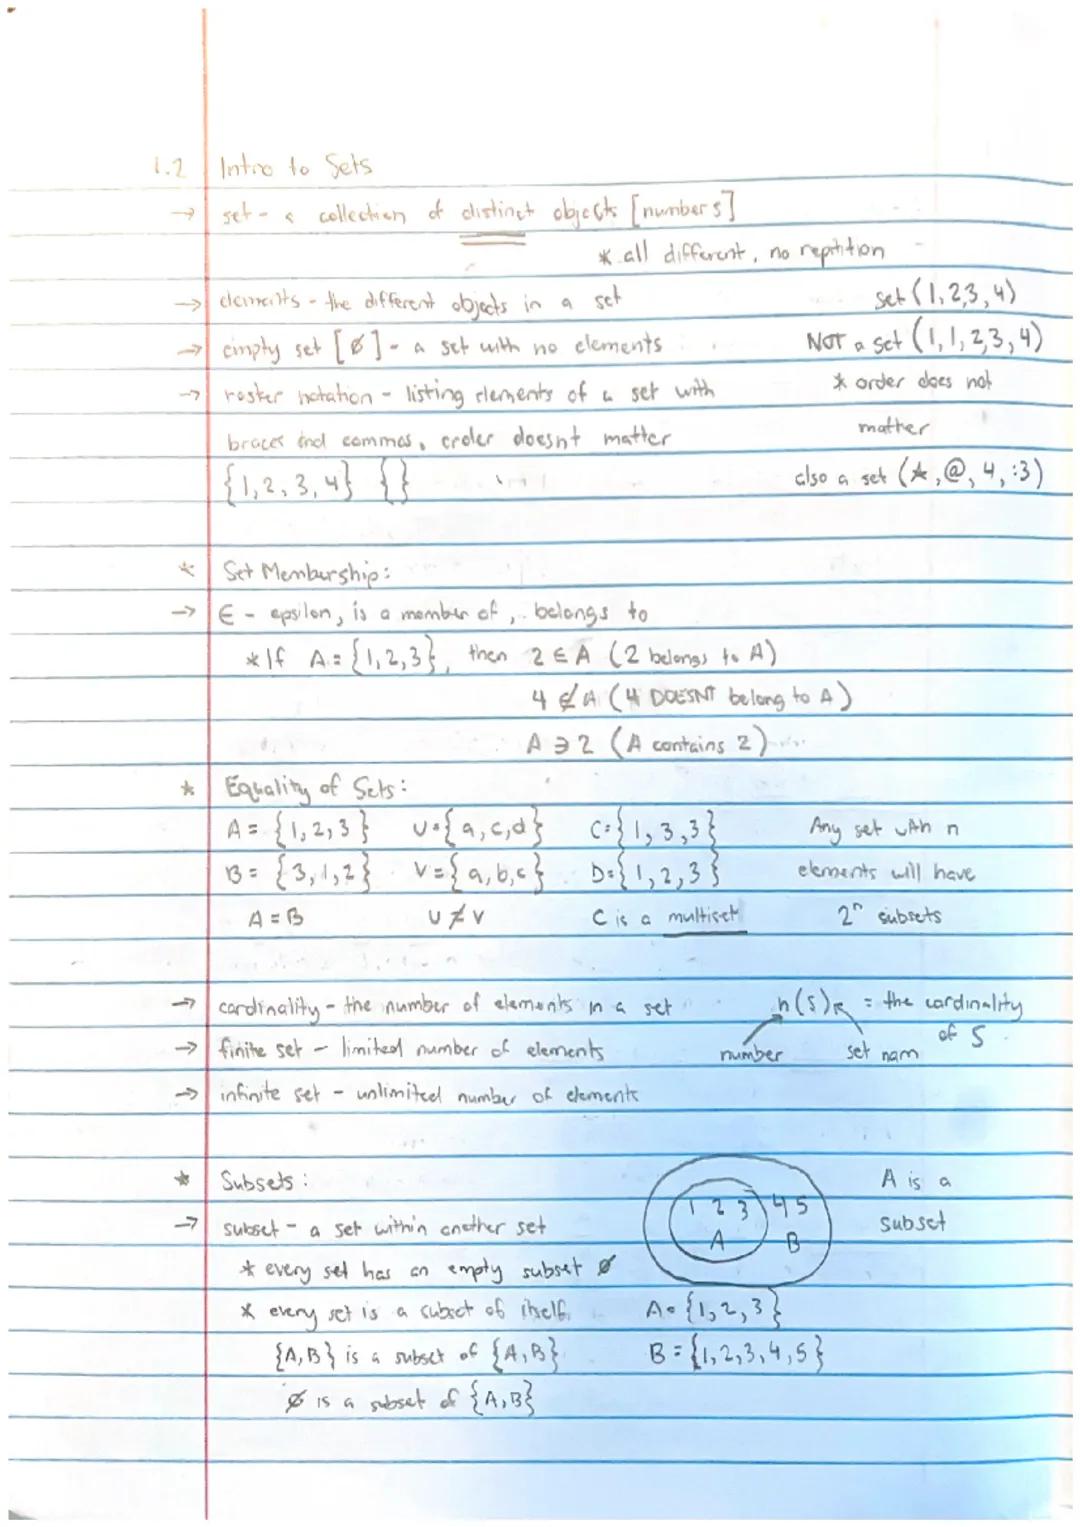 1.2 Intro to Sets
→ set - a collection of distinct objects [numbers]
* all different, no reptition
→ elements - the different objects in a set
set (1,2,3,4)
→ empty set [Ø] - a set with no elements
NOT a set (1,1,2,3,4)
→ roster notation - listing elements of a set with
* order does not
braces and commas, order doesnt matter
matter
{1,2,3,4} {}
also a set (★,@,4,:3)
* Set Membership:
→ ∈ - epsilon, is a member of, belongs to
* If A = {1,2,3}, then 2 ∈ A (2 belongs to A)
4 ∉ A (4 DOESNT belong to A)
A ∋ 2 (A contains 2)
* Equality of Sets:
A = {1,2,3} U = {a,c,d} C = {1,3,3} Any set with n
B = {3,1,2} V = {a,b,c} D = {1,2,3} elements will have
A = B U ≠ V C is a multiset 2ⁿ subsets
→ cardinality - the number of elements in a set n(S) = the cardinality
of S
→ finite set - limited number of elements number set nam
→ infinite set - unlimited number of elements
* Subsets:
1 2 3 4 5
A is a
→ subset - a set within another set
A B
subset
* every set has an empty subset Ø
* every set is a subset of itself.
A = {1,2,3}
{A,B} is a subset of {A,B}
B = {1,2,3,4,5}
Ø is a subset of {A,B}